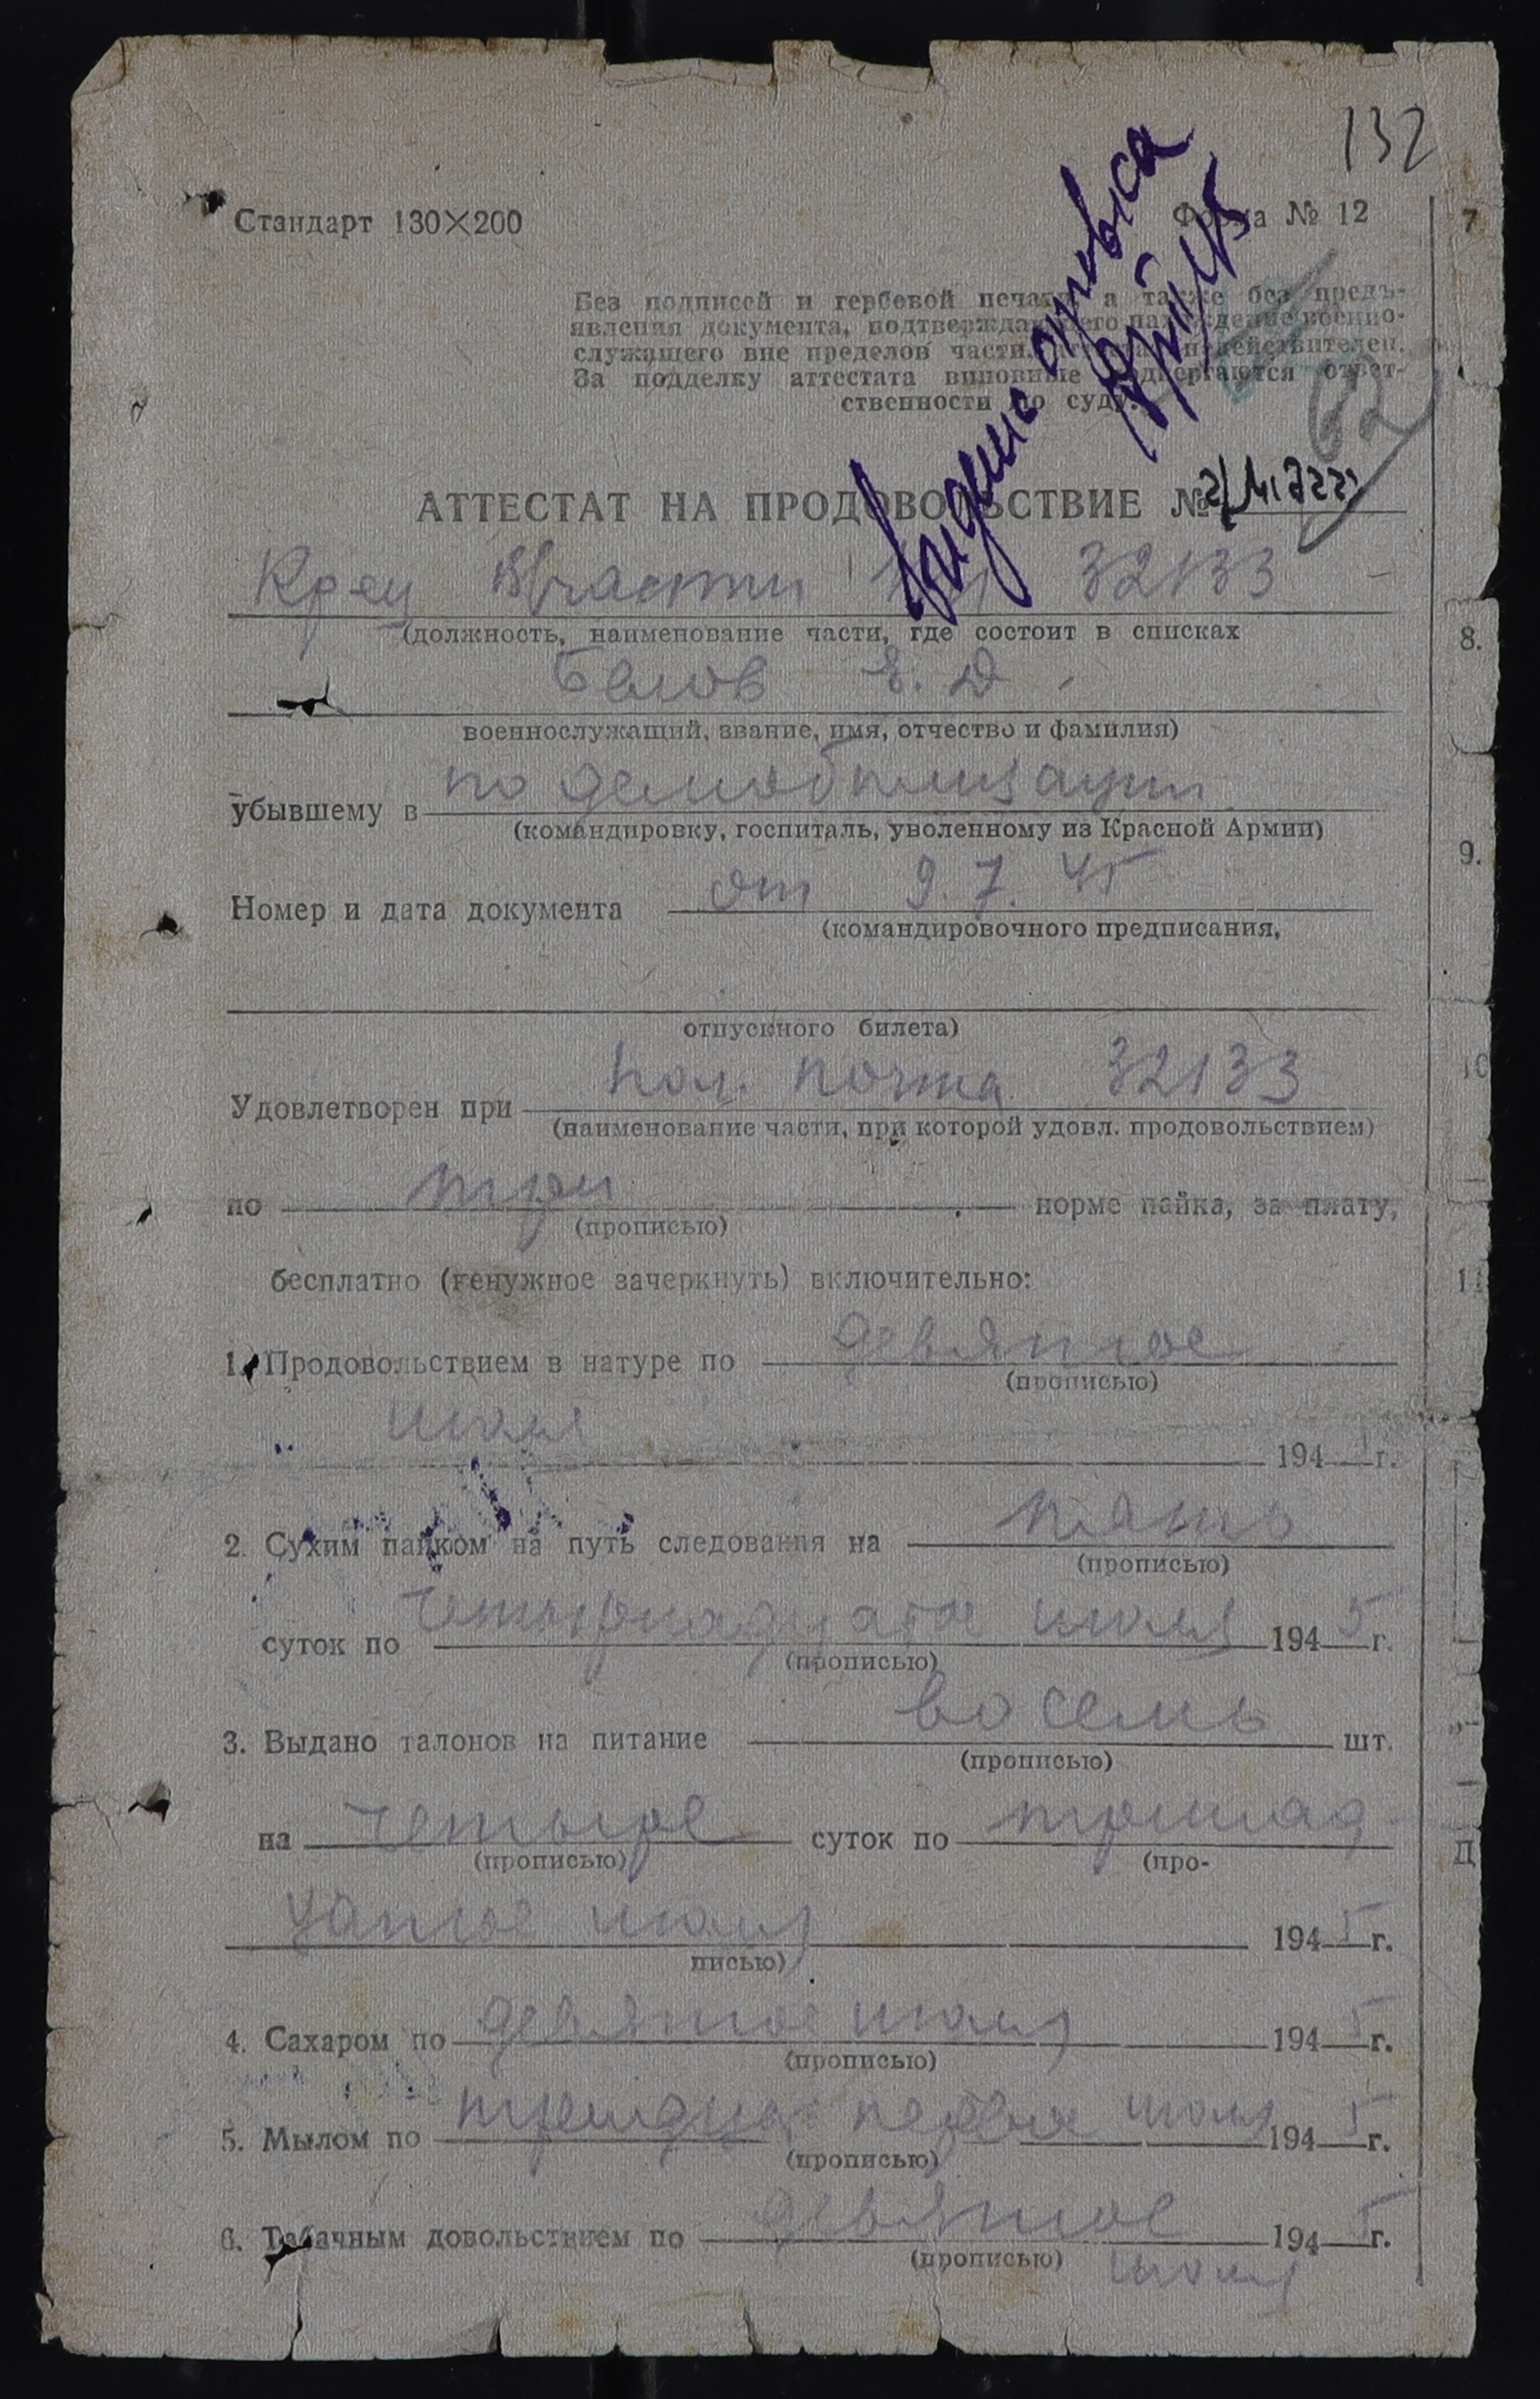 132
Стандарт 130×200
Форма № 12
7
Без подписей и гербовой печати, а также без предъ-
явления документа, подтверждающего нахождение военно-
служащего вне пределов части, аттестат недействителен.
За подделку аттестата виновные подвергаются ответ-
ственности по суду.
АТТЕСТАТ НА ПРОДОВОЛЬСТВИЕ №
Кр-ец В/части 32133
(должность, наименование части, где состоит в списках
8.
Белов Е. Д
военнослужащий, звание, имя, отчество и фамилия)
убывшему в по демобилизации
(командировку, госпиталь, уволенному из Красной Армии)
9.
Номер и дата документа от 9.7.45
(командировочного предписания,
отпускного билета)
10
Удовлетворен при пол. почта 32133
(наименование части, при которой удовл. продовольствием)
по три норме пайка, за плату,
(прописью)
бесплатно (ненужное зачеркнуть) включительно:
11
1. Продовольствием в натуре по девятое
(прописью)
июля 194 г.
2. Сухим пайком на путь следования на пять
(прописью)
суток по четырнадцатое июля 1945 г.
(прописью)
3. Выдано талонов на питание восемь шт.
(прописью)
на четыре суток по тринад
(прописью) (про-
Д
цатое июля 1945 г.
писью)
4. Сахаром по девятое июля 1945 г.
(прописью)
5. Мылом по тридцать первое июля 1945 г.
(прописью)
6. Табачным довольствием по девятое 1945 г.
(прописью) июля